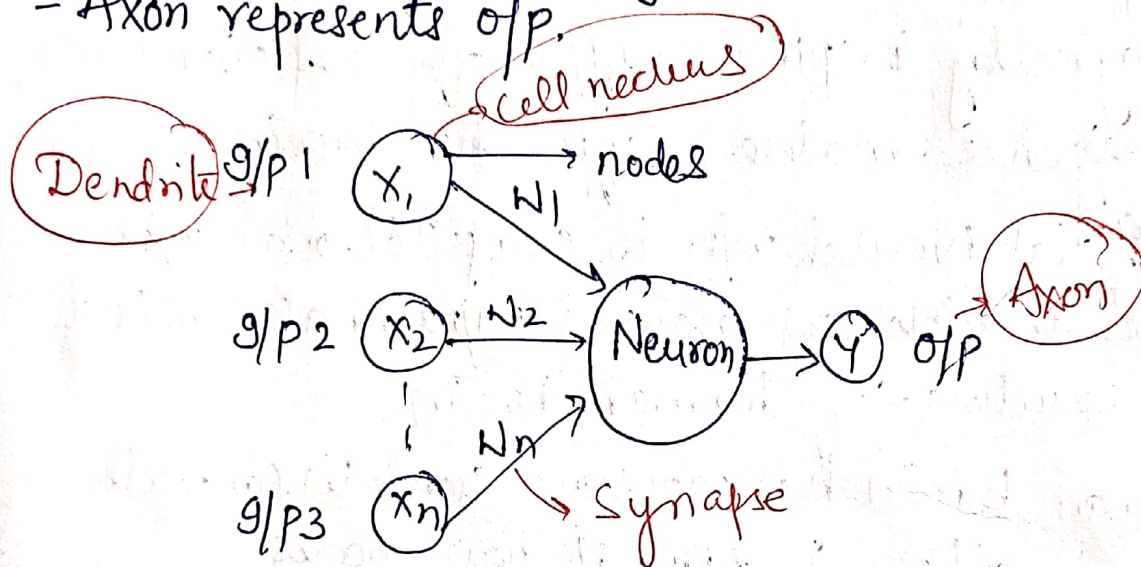 - Axon represents o/p.
cell necleus
Dendrite I/p 1 X1 nodes
W1
Axon
I/p 2 X2 W2 Neuron Y o/p
Wn
I/p3 Xn Synapse